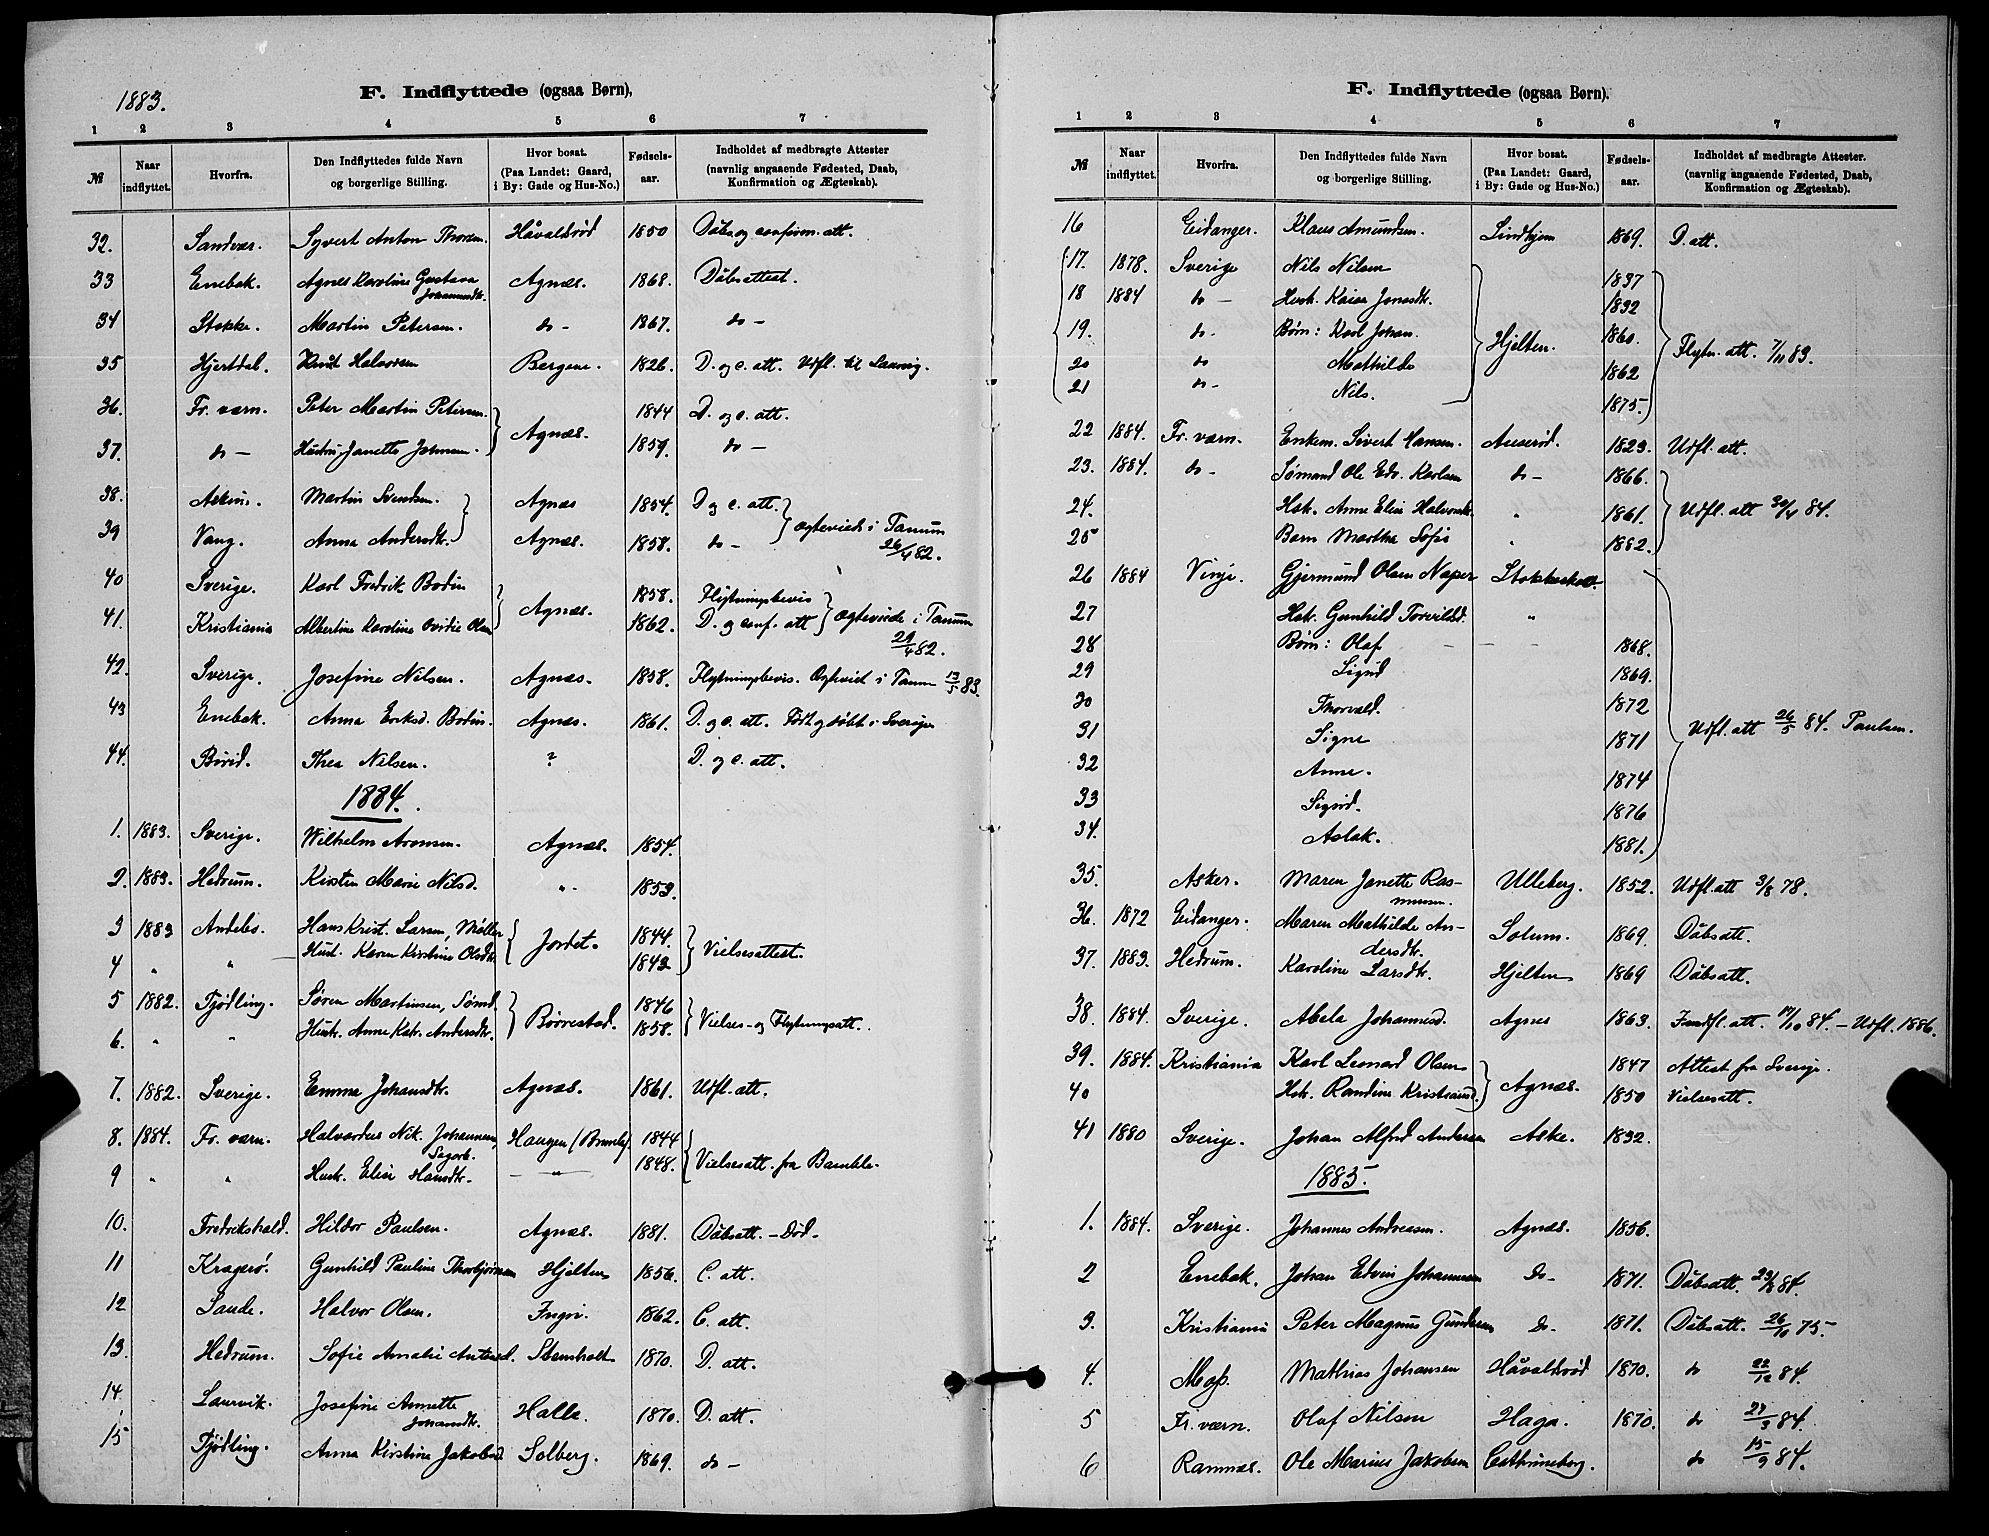 1883.
F. Indflyttede (ogsaa Børn),
1 2 3 4 5 6 7
№ Naar indflyttet. Hvorfra. Den Indflyttedes fulde Navn og borgerlige Stilling. Hvor bosat. (Paa Landet: Gaard, i By: Gade og Hus-No.) Fødsels-aar. Indholdet af medbragte Attester (navnlig angaaende Fødested, Daab, Konfirmation og Ægteskab).
32. Sandvær. Syvert Anton Thorsen. Håvaldsrød 1850 Dåbs og confirm. att.
33 Enebak. Agnes Karoline Gustava Johannesdtr. Agnæs. 1868. Dåbsattest.
34 Stokke. Martin Petersen. do - 1867. do -
35 Hjertdal. Knut Halvorsen Bergene. 1826. D. og c. att. Udfl. til Laurvig.
36. Fr. værn. Peter Martin Petersen. Agnæs. 1844 D. og c. att.
37. do - Hustru Janette Johnsen. 1859. do -
38. Askim. Martin Svendsen. Agnæs 1854. D og c. att.
39 Vang. Anna Andersdtr. Agnæs. 1858. do - Ægteviede i Tanum 26/4 82.
40 Sverige. Karl Fredrik Bodin Agnæs. 1858. Flytningsbevis
41. Kristiania Albertine Karoline Ovidie Olsen 1862. D. og conf. att Ægteviede i Tanum 29/4 82.
42. Sverige. Josefine Nilsen. Agnæs. 1858. Flytningsbevis. Ægteviet i Tanum 13/5 83.
43 Enebak. Anna Eriksd. Bodin. Agnæs. 1861. D. og c. att. Født og døbt i Sverige
44. Thea Nilsen. ? D. og c. att.
1884.
1. 1883. Sverige. Wilhelm Aronsen. Agnæs. 1854.
2. 1883. Hedrum. Kirsten Marie Nilsd. " 1853.
3 1883 Andebo. Hans Krist. Larsen, Møller Jordet. 1844. Vielsesattest.
4 " " Hust. Karen Kristine Olsdtr. 1843
5 1882. Tjødling. Søren Martinsen, Sømd. Børrestad. 1846 Vielses- og Flytningsatt.
6. " " Hust. Anne Katr. Andersdtr. 1858.
7. 1882. Sverige. Emma Johansdtr. Agnæs. 1861. Udfl. att.
8. 1884. Fr. værn. Halvardus Nik. Johannesen, Haugen 1844 Vielsesatt. fra Bamble.
9 " " Hust. Elise Hansdtr. - " - 1848.
10. Fredrikshald. Hildor Paulsen. Agnæs. 1881. Dåbsatt. - Død.
11 Kragerø. Gunhild Pauline Thorbjørnsen Hjelten 1856. C. att.
12 Sande. Halvor Olsen. 1862. C. att.
13. Hedrum. Sofie Amalie Antonsd. Stensholt 1870. D. att.
14. Laurvik. Josefine Annette Johansdtr. Halle. 1870. D. att.
15 Tjødling. Anna Kirstine Jakobsd Solberg. 1869. do -
F. Indflyttede (ogsaa Børn).
1 2 3 4 5 6 7
№ Naar indflyttet. Hvorfra. Den Indflyttedes fulde Navn og borgerlige Stilling. Hvor bosat. (Paa Landet: Gaard, i By: Gade og Hus-No.) Fødsels-aar. Indholdet af medbragte Attester. (navnlig angaaende Fødested, Daab, Konfirmation og Ægteskab).
16 Eidanger. Klaus Amundsen. Lindhjem 1869. D. att.
17. 1878. Sverige Nils Nilsen Hjelten. 1837 Flytn. att. 7/11 83.
18 1884 do - Hust. Kaisa Jonasdtr. 1832
19. do - Børn: Karl Johan. 1860.
20 do Mathilde 1862
21 do - Nils. 1875.
22 1884. Fr. værn. Enkem. Sivert Hansen. Auserød. 1823. Udfl. att.
23. 1884. do - Sømand Ole Edv. Karlsen do - 1866. Udfl. att 30/4 84.
24. Hst. Anne Elise Halvorsdtr. " 1861.
25 Barn Martha Sofie " 1882.
26 1884 Vinje. Gjermund Olsen Naper Stokkeholt Udfl. att 26/5 84. Paulsen.
27 Hst. Gunhild Torvildsd. "
28 Børn: Olaf - - - 1868.
29 Sigrid 1869.
30 Thorvald. 1872
31 Signe 1871
32 Anne. 1874
33 Sigrid. 1876
34. Aslak. 1881.
35. Asker. Maren Janette Rasmussen. Ulleberg. 1852. Udfl. att 3/8 78.
36. 1872 Eidanger. Maren Mathilde Andersdtr. Solum. 1869. Dåbsatt.
37. 1883. Hedrum. Karoline Larsdtr. Hjelten 1869 Dåbsatt.
38. 1884. Sverige. Abela Johannesd. Agnes 1863. Indfl. att. 14/10 84. - Udfl. 1886.
39. 1884. Kristiania Karl Leonard Olsen Agnæs. 1847 Attest fra Sverige.
40 Hst. Randine Kristiansd. 1850 Vielsesatt.
41 1880 Sverige. Johan Alfred Andersen Aske. 1832.
1885.
1. 1884. Sverige. Johannes Andreasen. Agnæs. 1856.
2 Enebak. Johan Edvin Johannesen do - 1871. Dåbsatt. 23/8 84.
3. Kristiania Peter Magnus Gundersen do - 1871. Dåbsatt. 26/10 75.
4. Moss. Mathias Johansen Håvaldsrød 1870. do 22/12 84.
5 Fr. værn. Olaf Nilsen Haga. 1870. do 27/3 84.
6 Ramnæs. Ole Marius Jakobsen Cathrineborg. do 15/9 84.